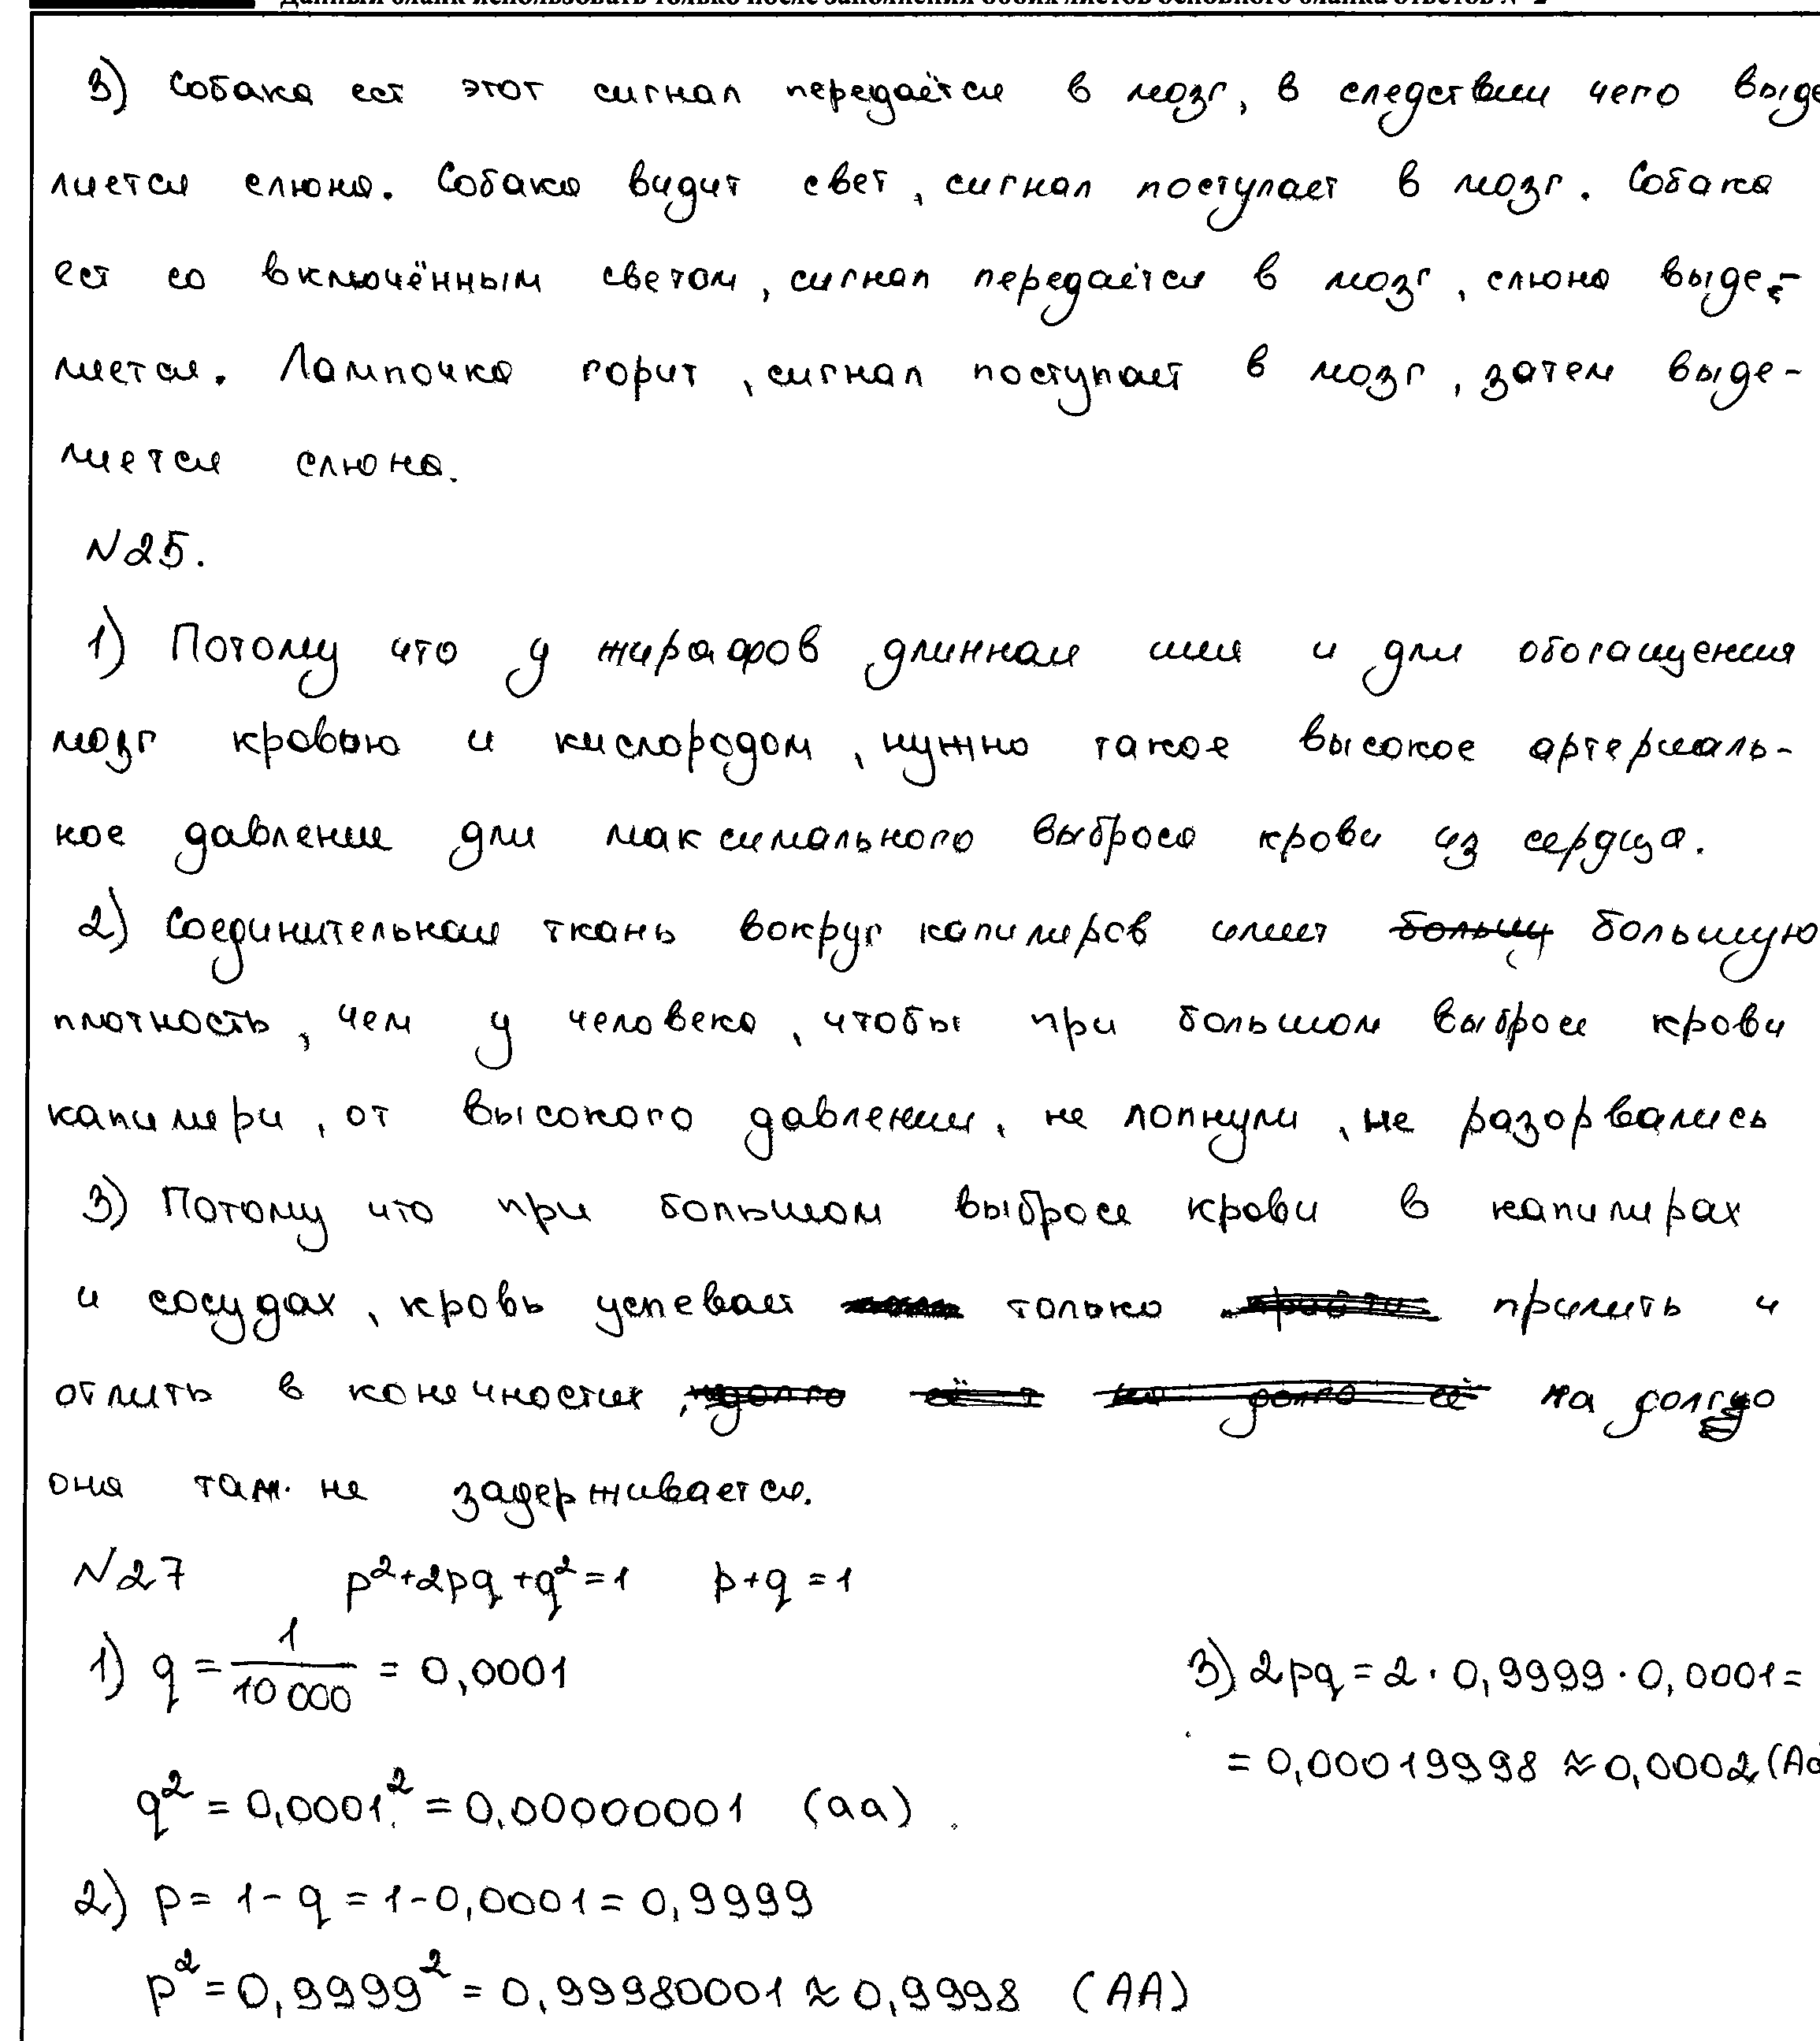 Данный бланк использовать только после заполнения обоих листов основного бланка ответов № 2
3) Собака ест этот сигнал передаётся в мозг, в следствии чего выде
ляется слюна. Собака видит свет, сигнал поступает в мозг. Собака
ест со включённым светом, сигнал передаётся в мозг, слюна выде-
ляется. Лампочка горит, сигнал поступает в мозг, затем выде-
ляется слюна.
N25.
1) Потому что у жирафов длинная шея и для обогащения
мозг кровью и кислородом, нужно такое высокое артериаль-
ное давление для максимального выброса крови из сердца.
2) Соединительная ткань вокруг капиляров имеет больщу большую
плотность, чем у человека, чтобы при большом выбросе крови
капиляри, от высокого давления, не лопнули, не разорвались
3) Потому что при большом выбросе крови в капилярах
и сосудах, кровь успевает только прилить и
отлить в конечностях, на долго
она там не задерживается.
N27 p²+2pq+q²=1 p+q=1
1) q = 1/10 000 = 0,0001 3) 2pq = 2 · 0,9999 · 0,0001 =
= 0,00019998 ≈ 0,0002 (Aa
q² = 0,0001² = 0,00000001 (aa)
2) p = 1 - q = 1 - 0,0001 = 0,9999
p² = 0,9999² = 0,99980001 ≈ 0,9998 (AA)